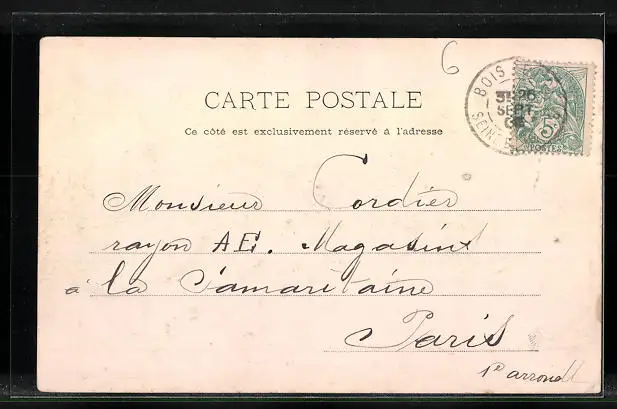 6
BOIS
SEPT
SEINE
POSTES
CARTE POSTALE
Ce côté est exclusivement réservé à l'adresse
Monsieur Cordier
rayon A E. Magasins
à la Samaritaine
Paris
1er arrondt